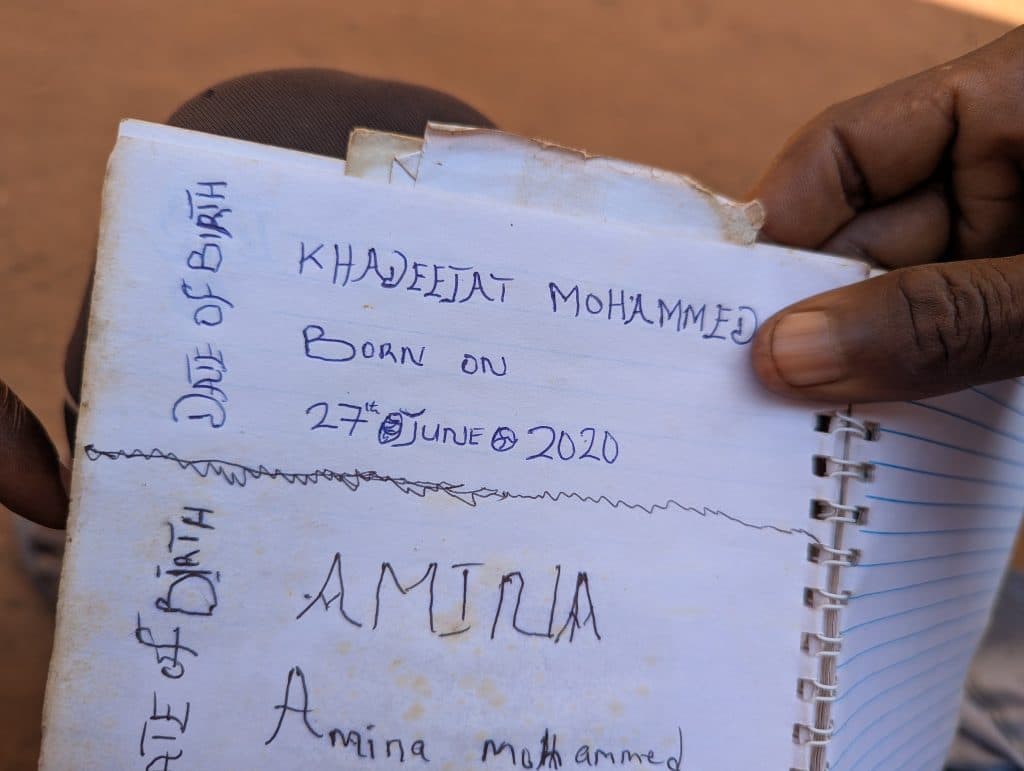 DATE OF BIRTH
KHADEEJAT MOHAMMED
BORN ON
27th JUNE 2020
ATE of BIRTH
AMINA
Amina mohammed